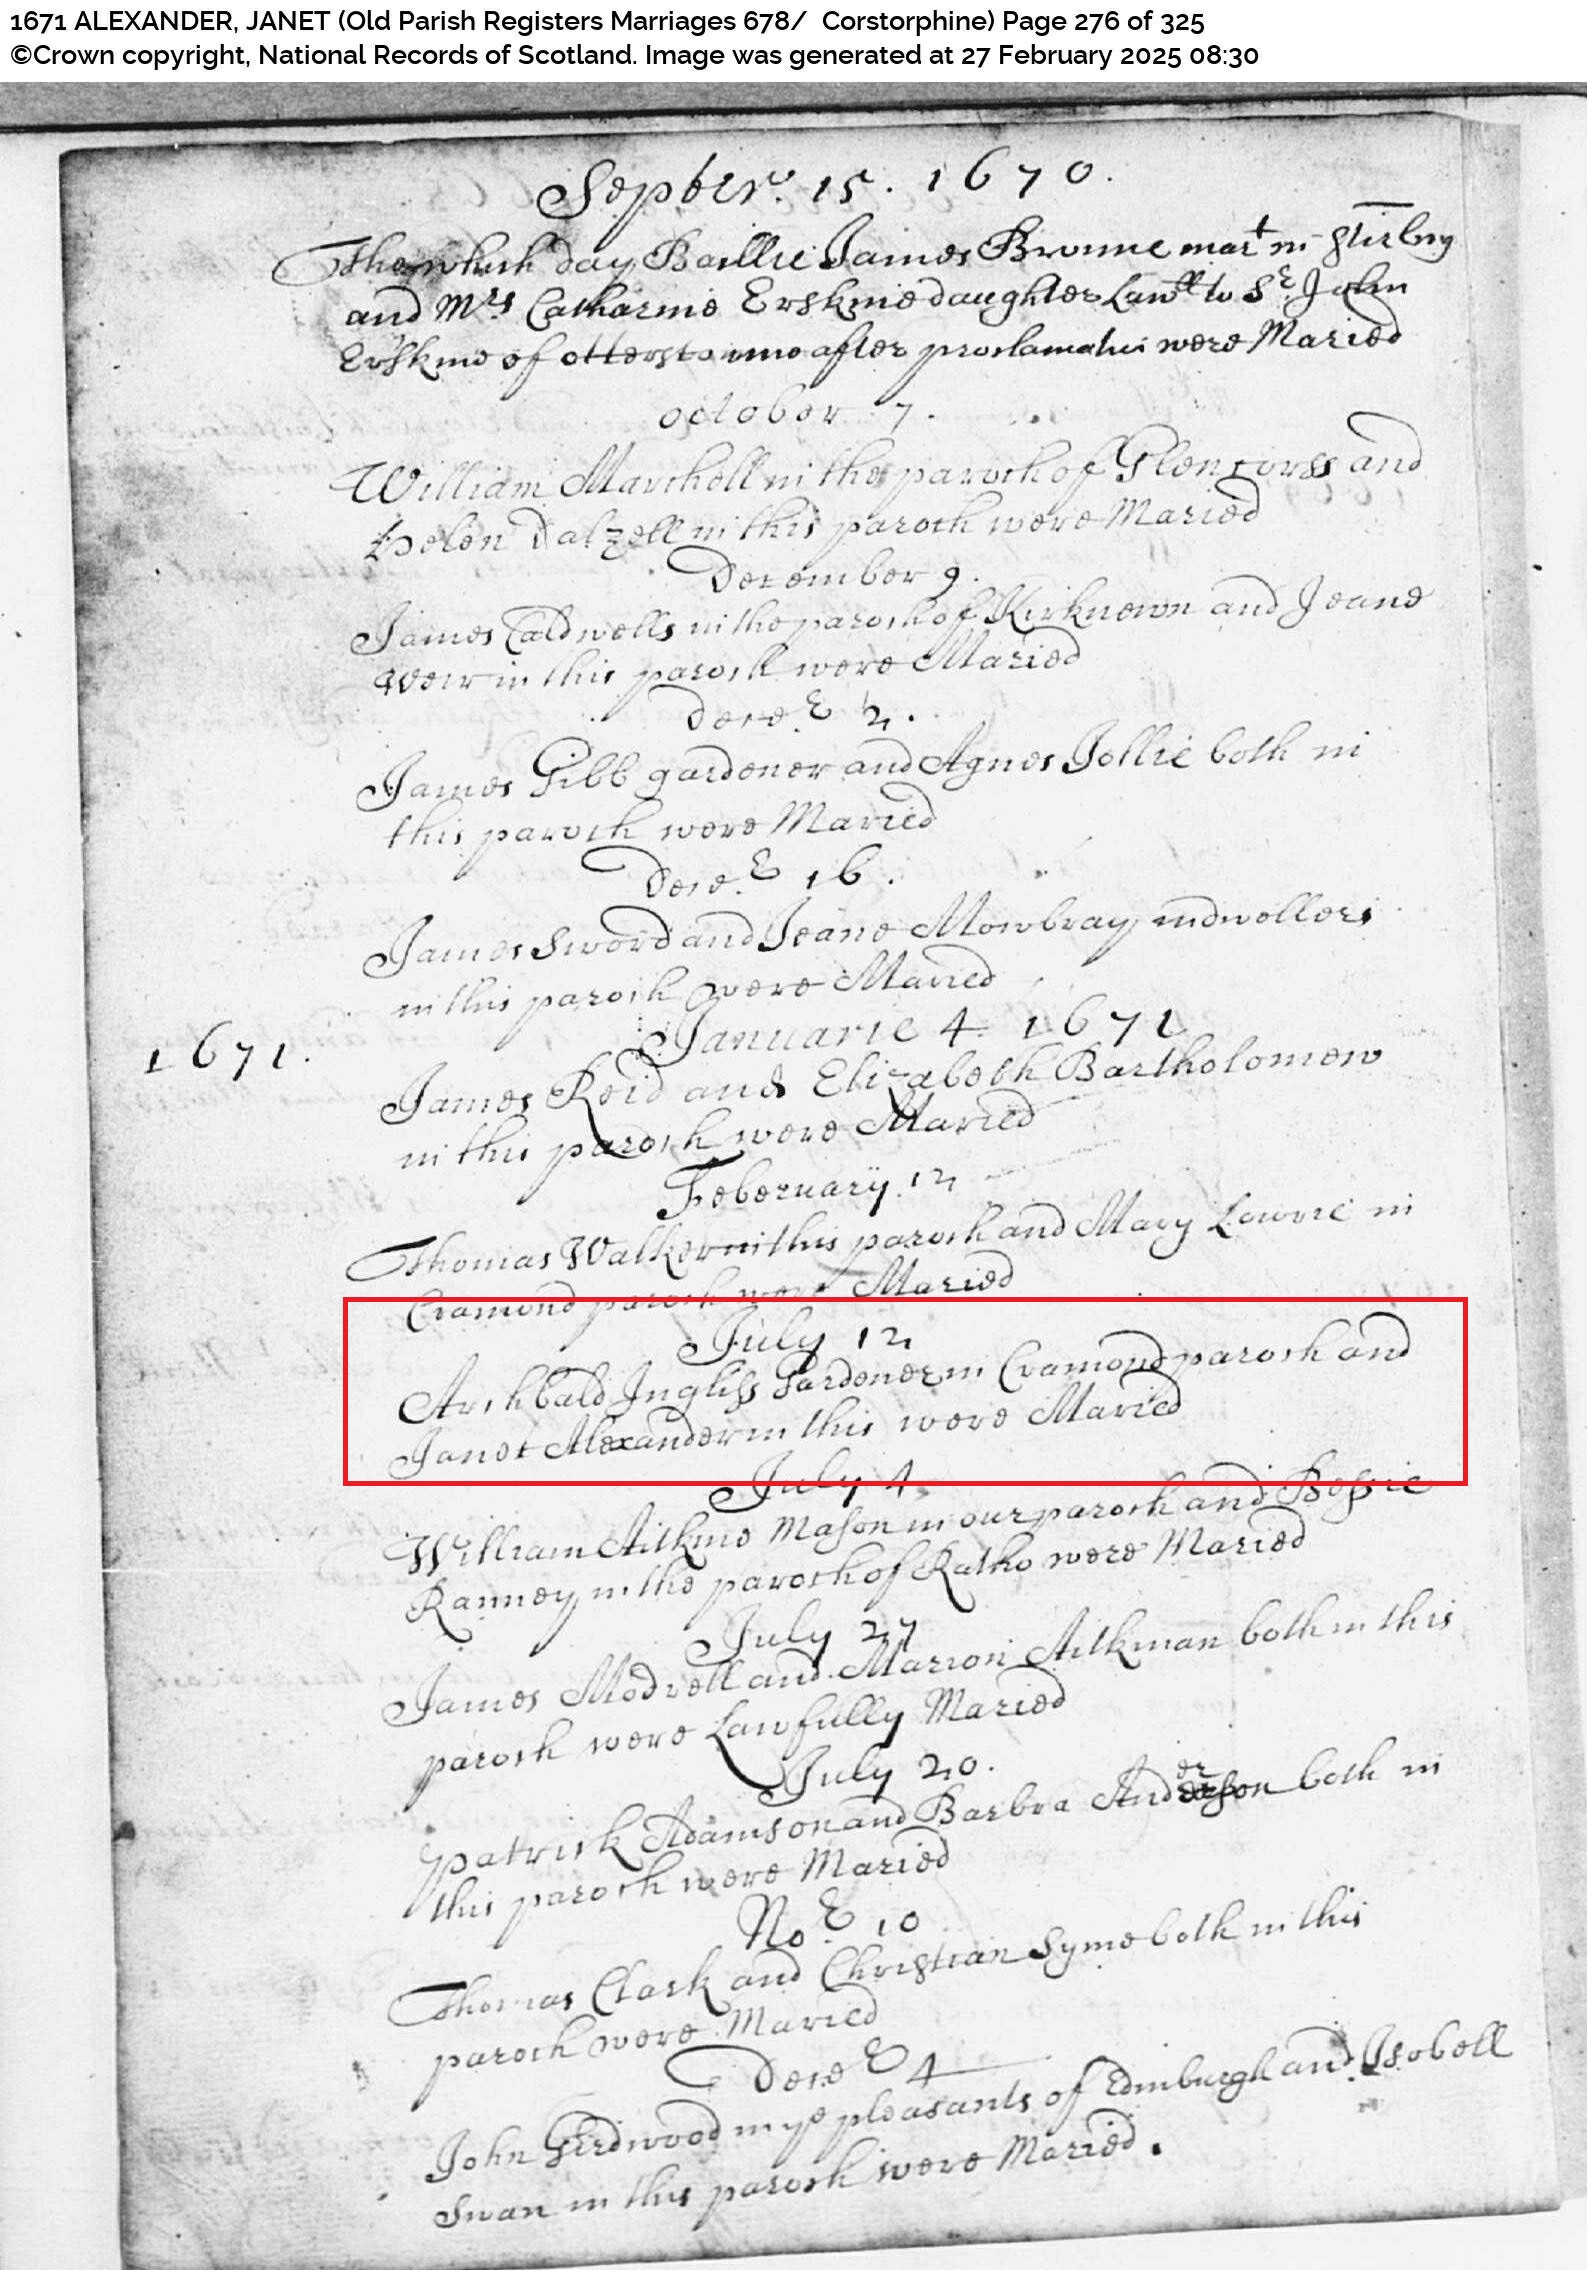 1671 ALEXANDER, JANET (Old Parish Registers Marriages 678/ Corstorphine) Page 276 of 325
©Crown copyright, National Records of Scotland. Image was generated at 27 February 2025 08:30
Septber. 15. 1670.
The which day Baillie James Broune mart in Stirling
and Mrs Catharine Erskine daughter Lawll to Sr John
Erskine of otterstoune after proclamatin were Maried
october 7.
William Marchell in the paroch of Glencorss and
Helen Dalzell in this paroch were Maried
December 9.
James Caldwells in the paroch of Kirknewn and Jeane
Weir in this paroch were Maried
Decer 2.
James Gibb gardener and Agnes Jollie both in
this paroch were Maried
Decer 16.
James Sword and Jeane Mowbray indwellers
in this paroch were Maried
Januarie 4 1671
1671.
James Reid and Elizabeth Bartholomew
in this paroch were Maried
Feberuary. 12
Thomas Walker in this paroch and Mary Lowrie in
Cramond paroch were Maried
July 12
Archbald Ingliss Gardener in Cramond paroch and
Janet Alexander in this were Maried
July 4
William Aitkine Mason in our paroch and Bessie
Ranney in the paroch of Ratho were Maried
July 27
James Modrell and Marion Aitkman both in this
paroch were Lawfully Maried
July 20.
Patrick Adamson and Barbra Anderson both in
this paroch were Maried
Nor 10
Thomas Clark and Christian Syme both in this
paroch were Maried
Decer 4
John Girdwood in ye pleasants of Edinburgh and Isobell
Swan in this paroch were Maried.